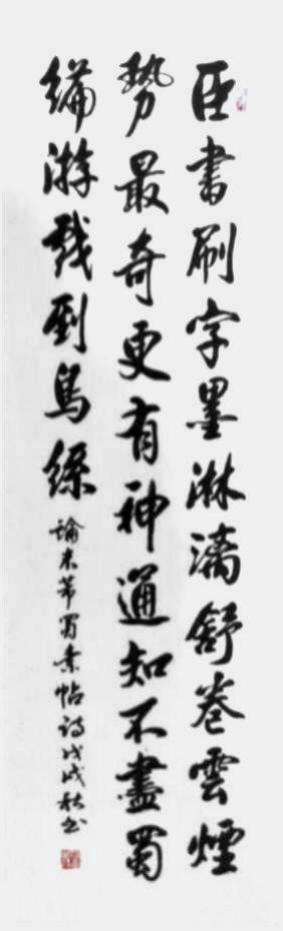 臣書刷字墨淋漓舒卷雲煙
勢最奇更有神通知不盡蜀
縑游戲到烏絲
論米芾蜀素帖詩戊戌秋書